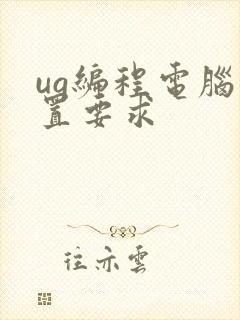 ug編程電腦
置要求
往亦雲